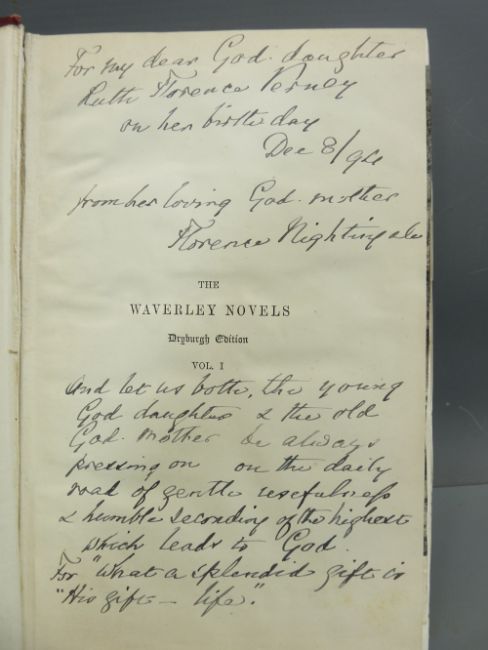 For my dear God. daughter
Ruth Florence Verney
on her birthday
Dec 8/94
from her loving God. mother
Florence Nightingale
THE
WAVERLEY NOVELS
Dryburgh Edition
VOL. I
And let us both, the young
God daughter & the old
God. mother be always
pressing on on the daily
road of gentle usefulness
& humble seconding of the highest
which leads to God.
For "What a splendid gift is
"His gift — life."